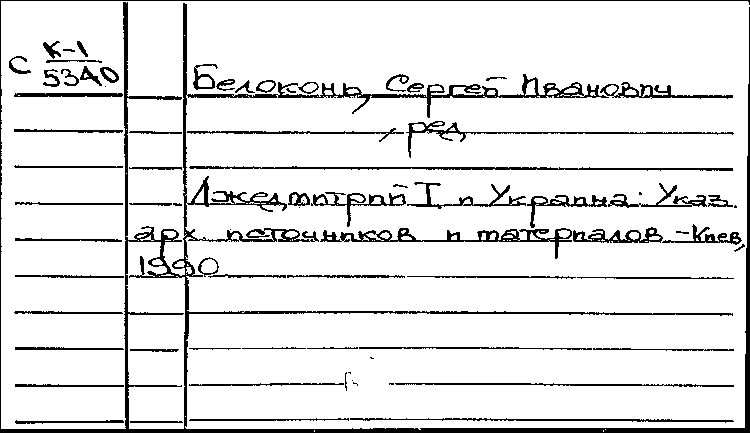 С К-1
5340
Белоконь, Сергей Иванович
, ред.
Лжедмитрий I и Украина: Указ.
арх. источников и материалов - Киев,
1990